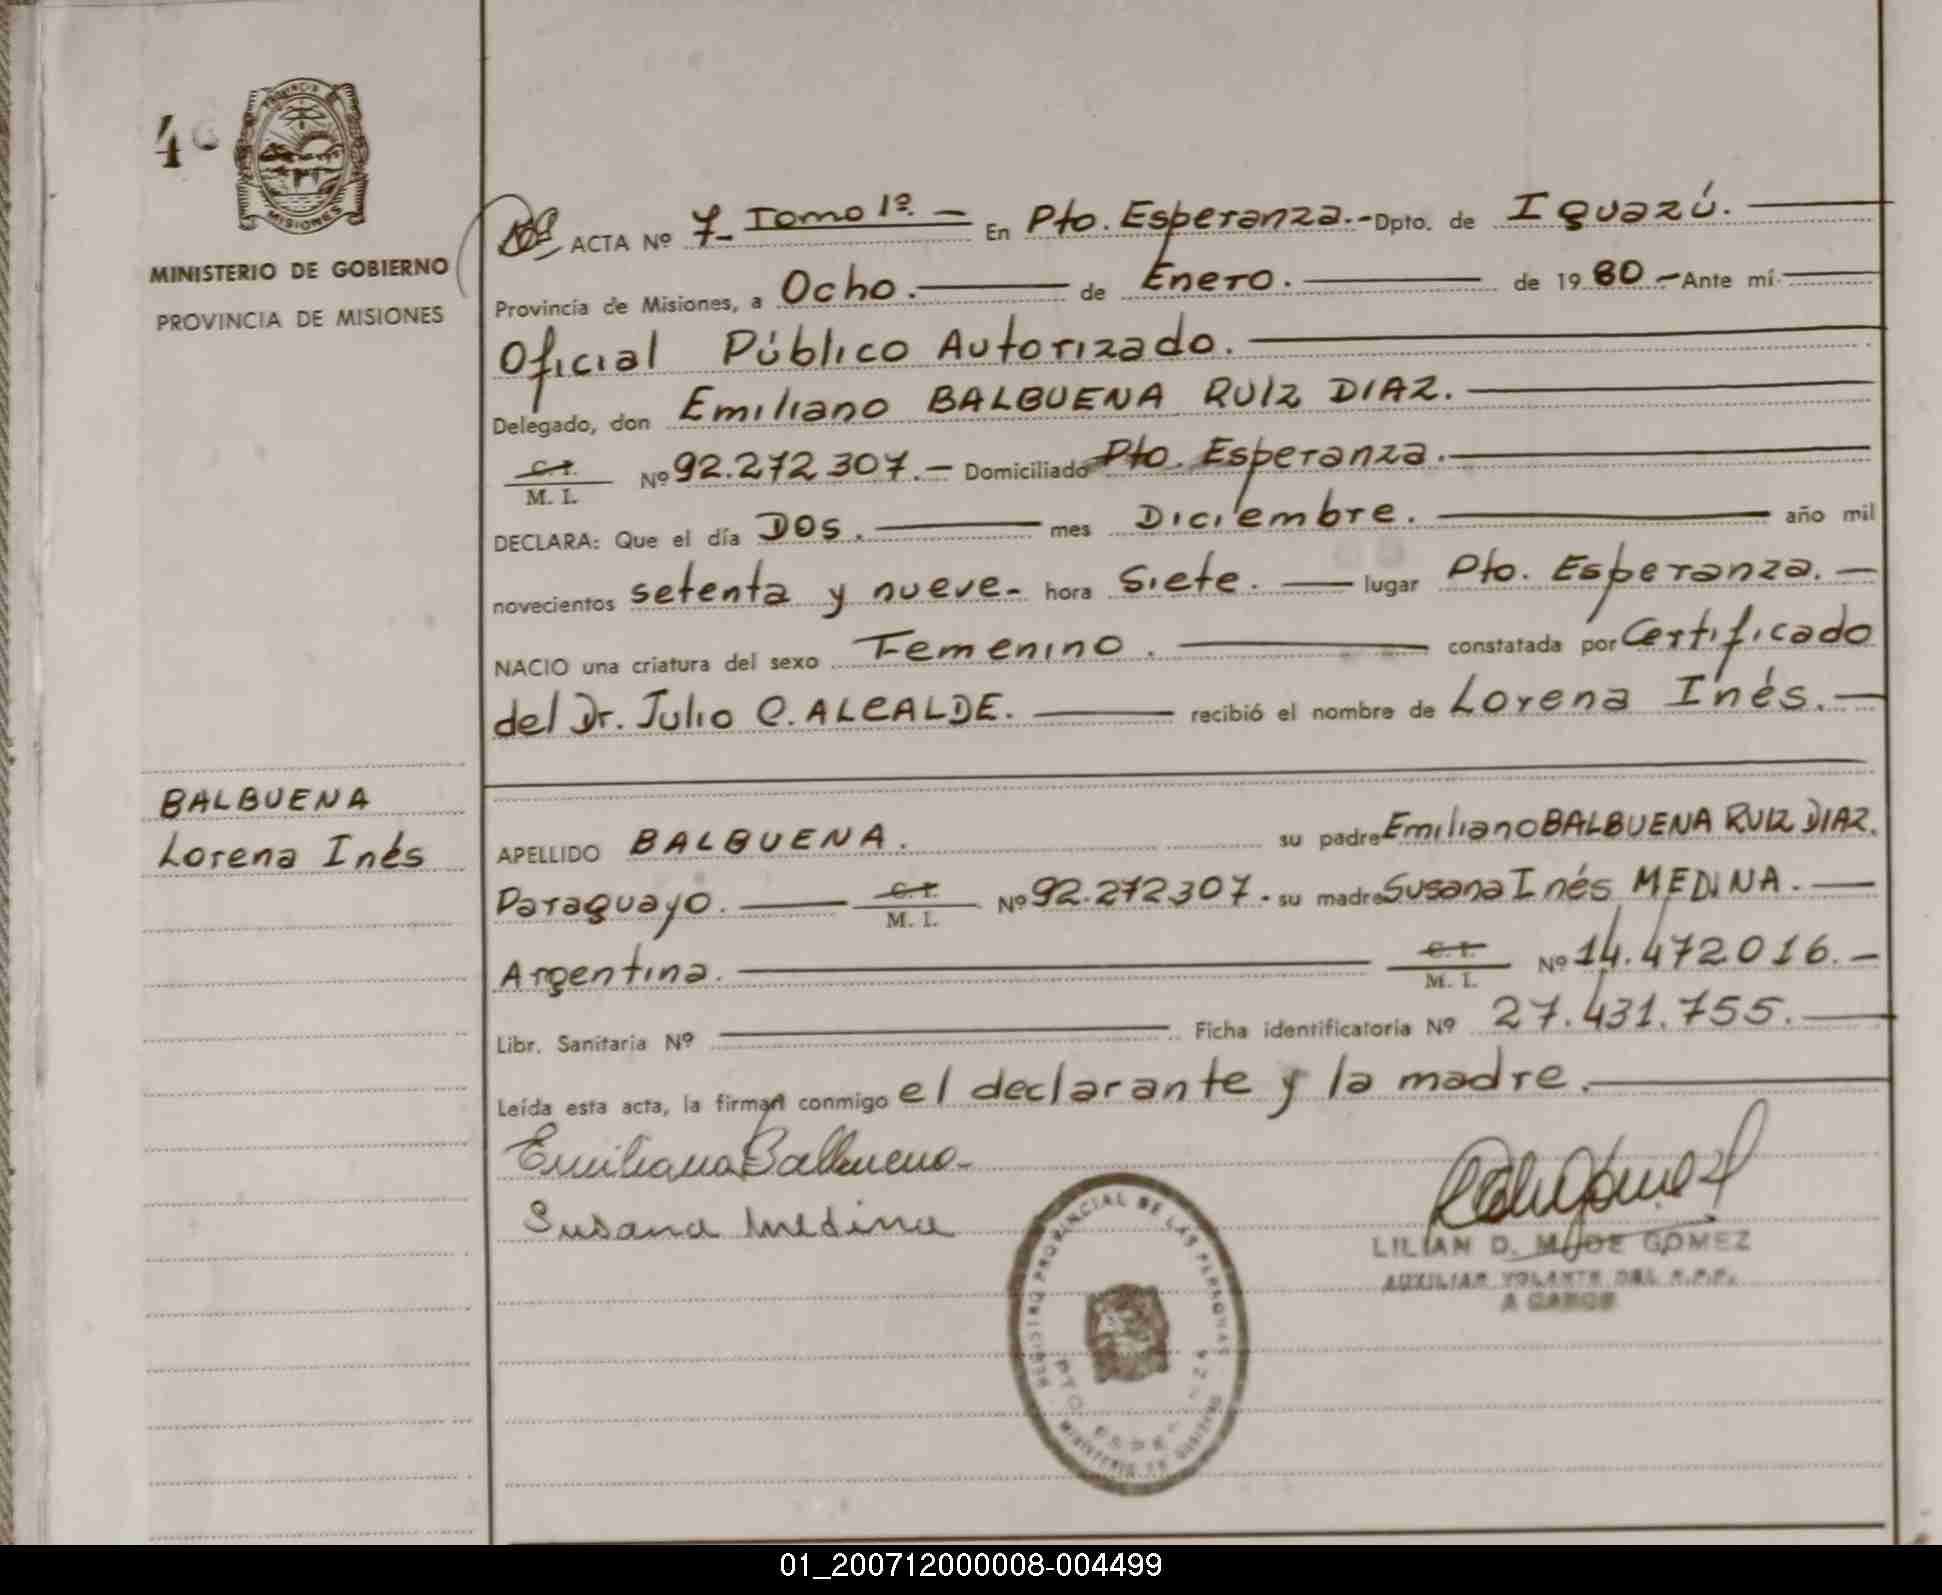 4
PROVINCIA DE
MISIONES
MINISTERIO DE GOBIERNO
PROVINCIA DE MISIONES
BALBUENA
Lorena Inés
ACTA Nº 7- Tomo 1º. — En Pto. Esperanza.- Dpto. de Iguazú.
Provincia de Misiones, a Ocho. de Enero. de 19 80 .- Ante mí
Oficial Público Autorizado.
Delegado, don Emiliano BALBUENA RUIZ DIAZ.
C. I.
M. I. Nº 92.272.307.- Domiciliado Pto. Esperanza.
DECLARA: Que el día DOS. mes Diciembre. año mil
novecientos setenta y nueve- hora Siete. lugar Pto. Esperanza. —
NACIO una criatura del sexo Femenino. constatada por Certificado
del Dr. Julio C. ALCALDE. recibió el nombre de Lorena Inés. —
APELLIDO BALBUENA. su padre Emiliano BALBUENA RUIZ DIAZ.
Paraguayo. C. I. M. I. Nº 92.272.307. su madre Susana Inés MEDINA. —
Argentina. C. I. M. I. Nº 14.472.016. -
Libr. Sanitaria Nº Ficha identificatoria Nº 27.431.755.
Leída esta acta, la firman conmigo el declarante y la madre.
Emiliano Balbuena-
Susana Medina
LILIAN D. M. DE GOMEZ
AUXILIAR VOLANTE DEL R.P.P.
A CARGO
REGISTRO PROVINCIAL DE LAS PERSONAS
PTO. ESPE
MINISTERIO DE GOBIERNO
01_200712000008-004499